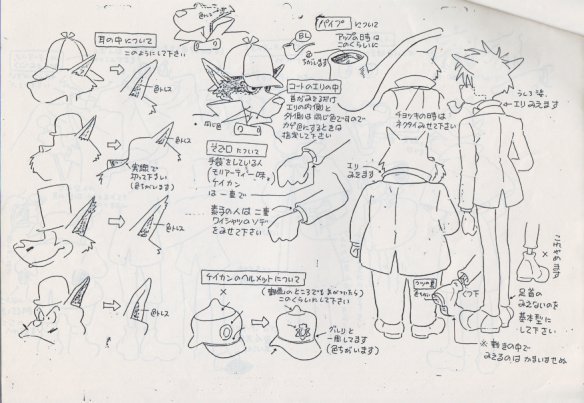 耳の中について
このようにして下さい
色トレス
色トレス
実線で
切って下さい
(色ちがいます)
パイプ について
アップの時は
このくらいに
BL
色ちがいます
コートのエリの中
エリの内側と
外側は同じ色ですので
カゲ色にするときは
指定して下さい
同じ色
ソデ口について
手袋をしている人
(モリアーティ一味、
ケイカン
は一重で
素手の人は二重
ワイシャツのソデ
をみせて下さい
ケイカンのヘルメットについて
×
このくらいにして下さい
グルリと
一周してます
(色ちがいます)
ネクタイみせて下さい
エリ
みえます
うしろ姿、
エリみえます
クツの裏
くつ下
×
足首の
みえないのを
基本型に
して下さい
※動きの中で
みえるのはかまいません